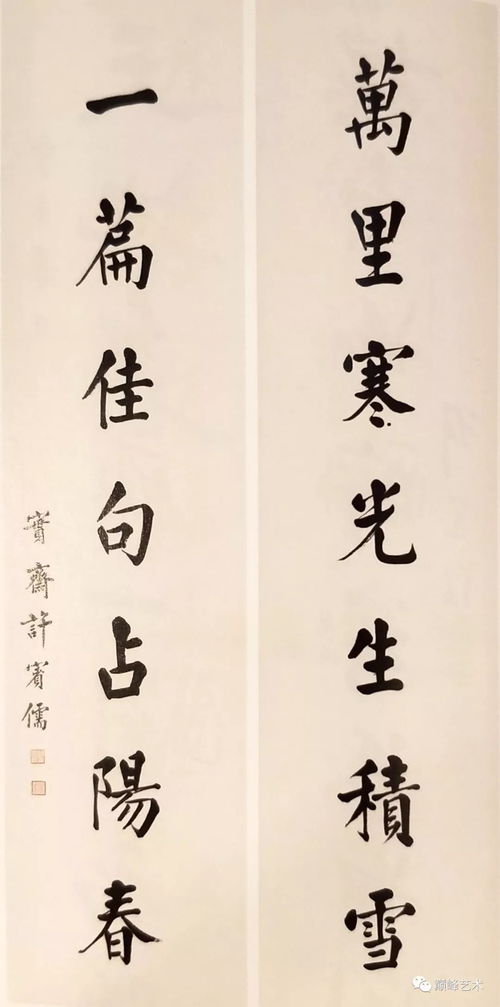 萬里寒光生積雪
一篇佳句占陽春
實齋許賓儒
巅峰艺术